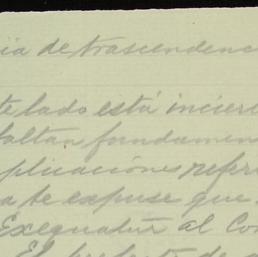 ia de trascendenc
te lado está incier
faltan fundamen
plicaciones refer
a te expuse que
Exequatur al Con
El